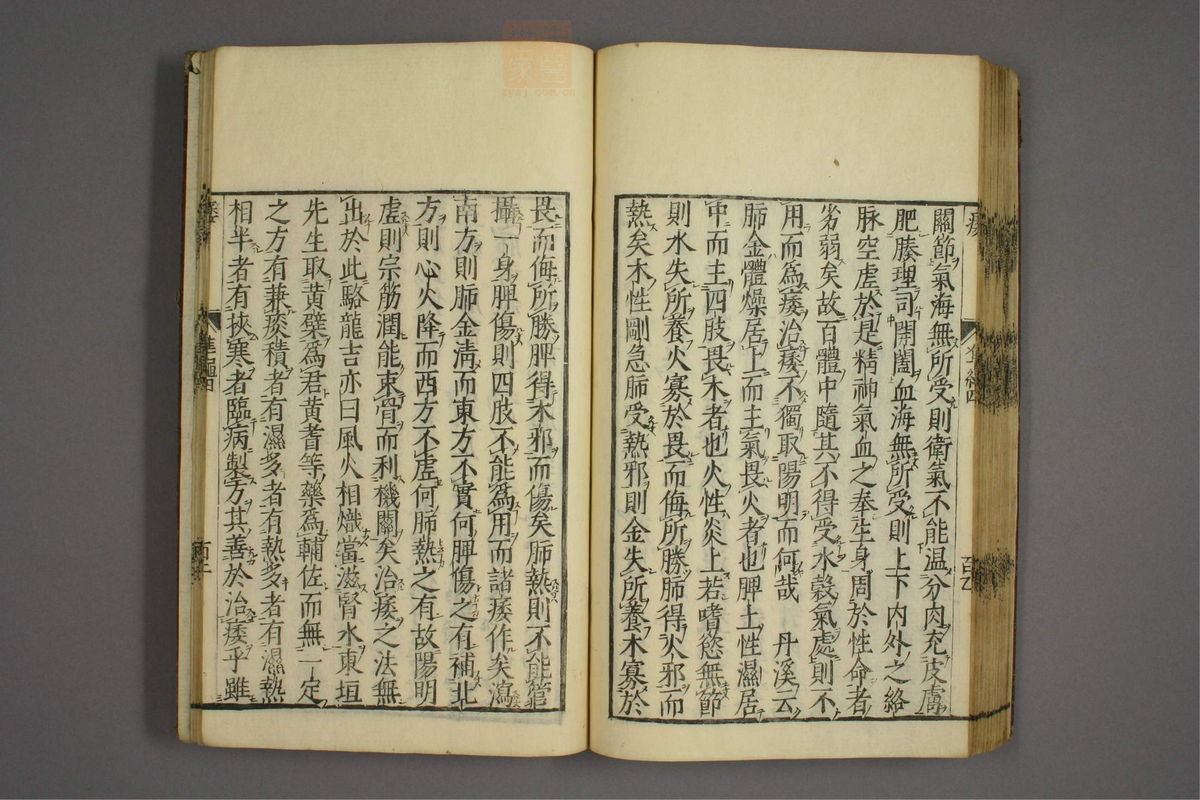 關節氣海無所受則衛氣不能溫分肉充皮膚
肥腠理司開闔血海無所受則上下内外之絡
脉空虛於是精神氣血之奉生身周於性命者
劣弱矣故百體中隨其不得受水榖氣處則不
用而爲痿治痿不獨取陽明而何哉 丹溪云
肺金體燥居上而主氣畏火者也脾土性濕居
中而主四肢畏木者也火性炎上若嗜慾無節
則水失所養火寡於畏而侮所勝肺得火邪而
熱矣木性剛急肺受熱邪則金失所養木寡於
畏而侮所勝脾得木邪而傷矣肺熱則不能管
攝一身脾傷則四肢不能爲用而諸痿作矣瀉
南方則肺金淸而東方不實何脾傷之有補北
方則心火降而西方不虛何肺熱之有故陽明
虛則宗筋潤能束骨而利機關矣治痿之法無
出於此駱龍吉亦曰風火相熾當滋腎水東垣
先生取黃蘗爲君黃耆等藥爲輔佐而無一定
之方有兼痰積者有濕多者有熱多者有濕熱
相半者有挾寒者臨病製方其善於治痿乎雖